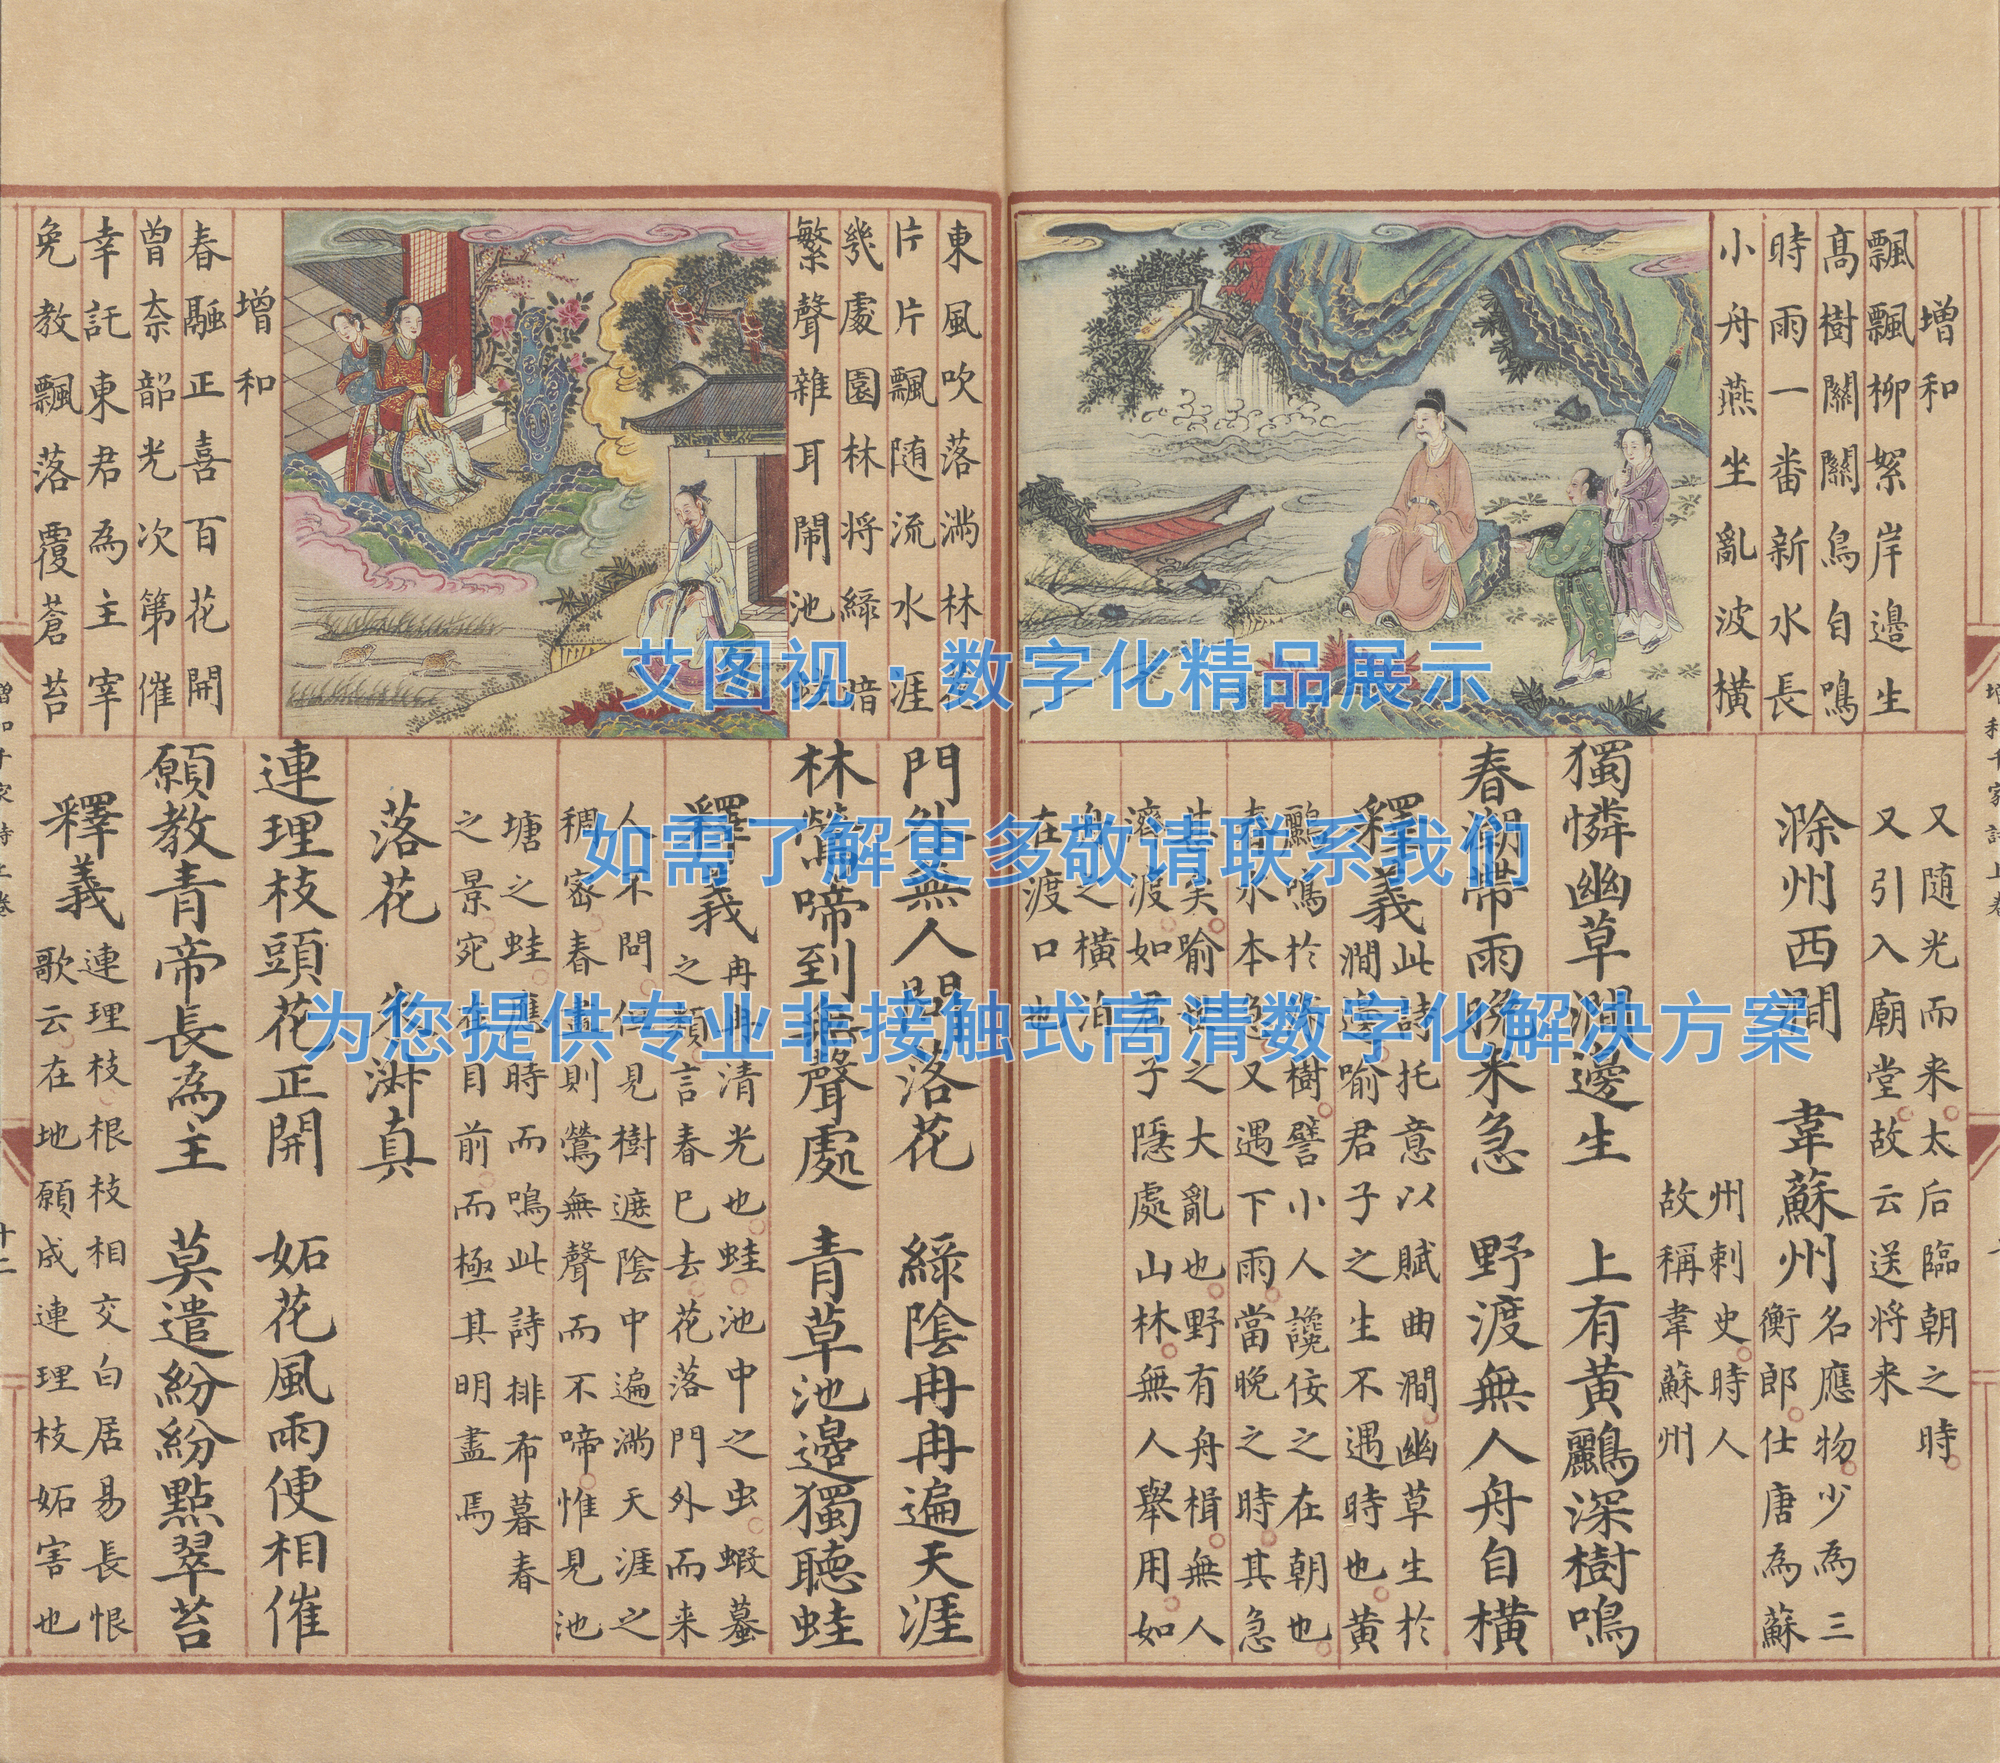 增和
飄飄柳絮岸邊生
高樹關關鳥自鳴
時雨一番新水長
小舟燕坐亂波橫
又随光而来太后臨朝之時
又引入廟堂故云送将来
滁州西澗 韋蘇州
名應物少為三
衡郎仕唐為蘇
州刺史時人
故稱韋蘇州
獨憐幽草澗邊生 上有黃鸝深樹鳴
春潮帶雨晚来急 野渡無人舟自橫
釋義
此詩托意以賦曲澗幽草生於
澗邊喻君子之生不遇時也黃
鸝鳴於深樹譬小人讒佞之在朝也
春水本急又遇下雨當晚之時其急
甚矣喻世之大亂也野有舟楫無人
濟渡如君子隱處山林無人舉用如
舟之橫泊
在渡口也
增和千家詩上卷
東風吹落滿林花
片片飄随流水涯
幾處園林将綠暗
繁聲雜耳鬧池蛙
增和
春融正喜百花開
曾奈韶光次第催
幸託東君為主宰
免教飄落覆蒼苔
門外無人問落花 綠陰冉冉遍天涯
林鶯啼到無聲處 青草池邊獨聽蛙
釋義
冉冉清光也蛙池中之虫蝦蟇
之類言春已去花落門外而来
人不問但見樹遮陰中遍滿天涯之
稠密春盡則鶯無聲而不啼惟見池
塘之蛙應時而鳴此詩排布暮春
之景宛在目前而極其明盡焉
落花 朱淑真
連理枝頭花正開 妬花風雨便相催
願教青帝長為主 莫遣紛紛點翠苔
釋義
連理枝根枝相交白居易長恨
歌云在地願成連理枝妬害也
增和千家詩上卷
十二
艾图视·数字化精品展示
如需了解更多敬请联系我们
为您提供专业非接触式高清数字化解决方案